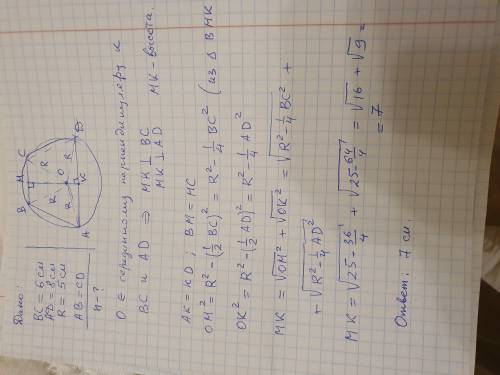 Дано:
BC = 6 см
AD = 8 см
R = 5 см
AB = CD
h - ?
B M C
R R O
R R
A K D
O ∈ серединному перпендикуляру к
BC и AD ⇒ MK ⊥ BC
MK ⊥ AD MK - высота.
AK = KD ; BM = MC
OM² = R² - (½ BC)² = R² - ¼ BC² (из Δ BMK
OK² = R² - (½ AD)² = R² - ¼ AD²
MK = √OM² + √OK² = √R² - ¼ BC² +
+ √R² - ¼ AD²
MK = √25 - 36/4 + √25 - 64/4 = √16 + √9 =
= 7
Ответ: 7 см.